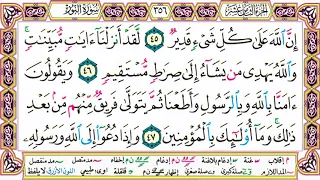 الجزء الثامن عشر ٣٥٦ سورة النور
إِنَّ ٱللَّهَ عَلَىٰ كُلِّ شَىْءٍ قَدِيرٌ ٤٥ لَّقَدْ أَنزَلْنَآ ءَايَٰتٍ مُّبَيِّنَٰتٍ ۚ
وَٱللَّهُ يَهْدِى مَن يَشَآءُ إِلَىٰ صِرَٰطٍ مُّسْتَقِيمٍ ٤٦ وَيَقُولُونَ
ءَامَنَّا بِٱللَّهِ وَبِٱلرَّسُولِ وَأَطَعْنَا ثُمَّ يَتَوَلَّىٰ فَرِيقٌ مِّنْهُم مِّنۢ بَعْدِ
ذَٰلِكَ ۚ وَمَآ أُو۟لَٰٓئِكَ بِٱلْمُؤْمِنِينَ ٤٧ وَإِذَا دُعُوٓا۟ إِلَى ٱللَّهِ وَرَسُولِهِۦ